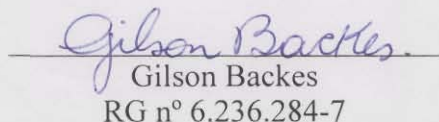 Gilson Backes.
Gilson Backes
RG nº 6.236.284-7